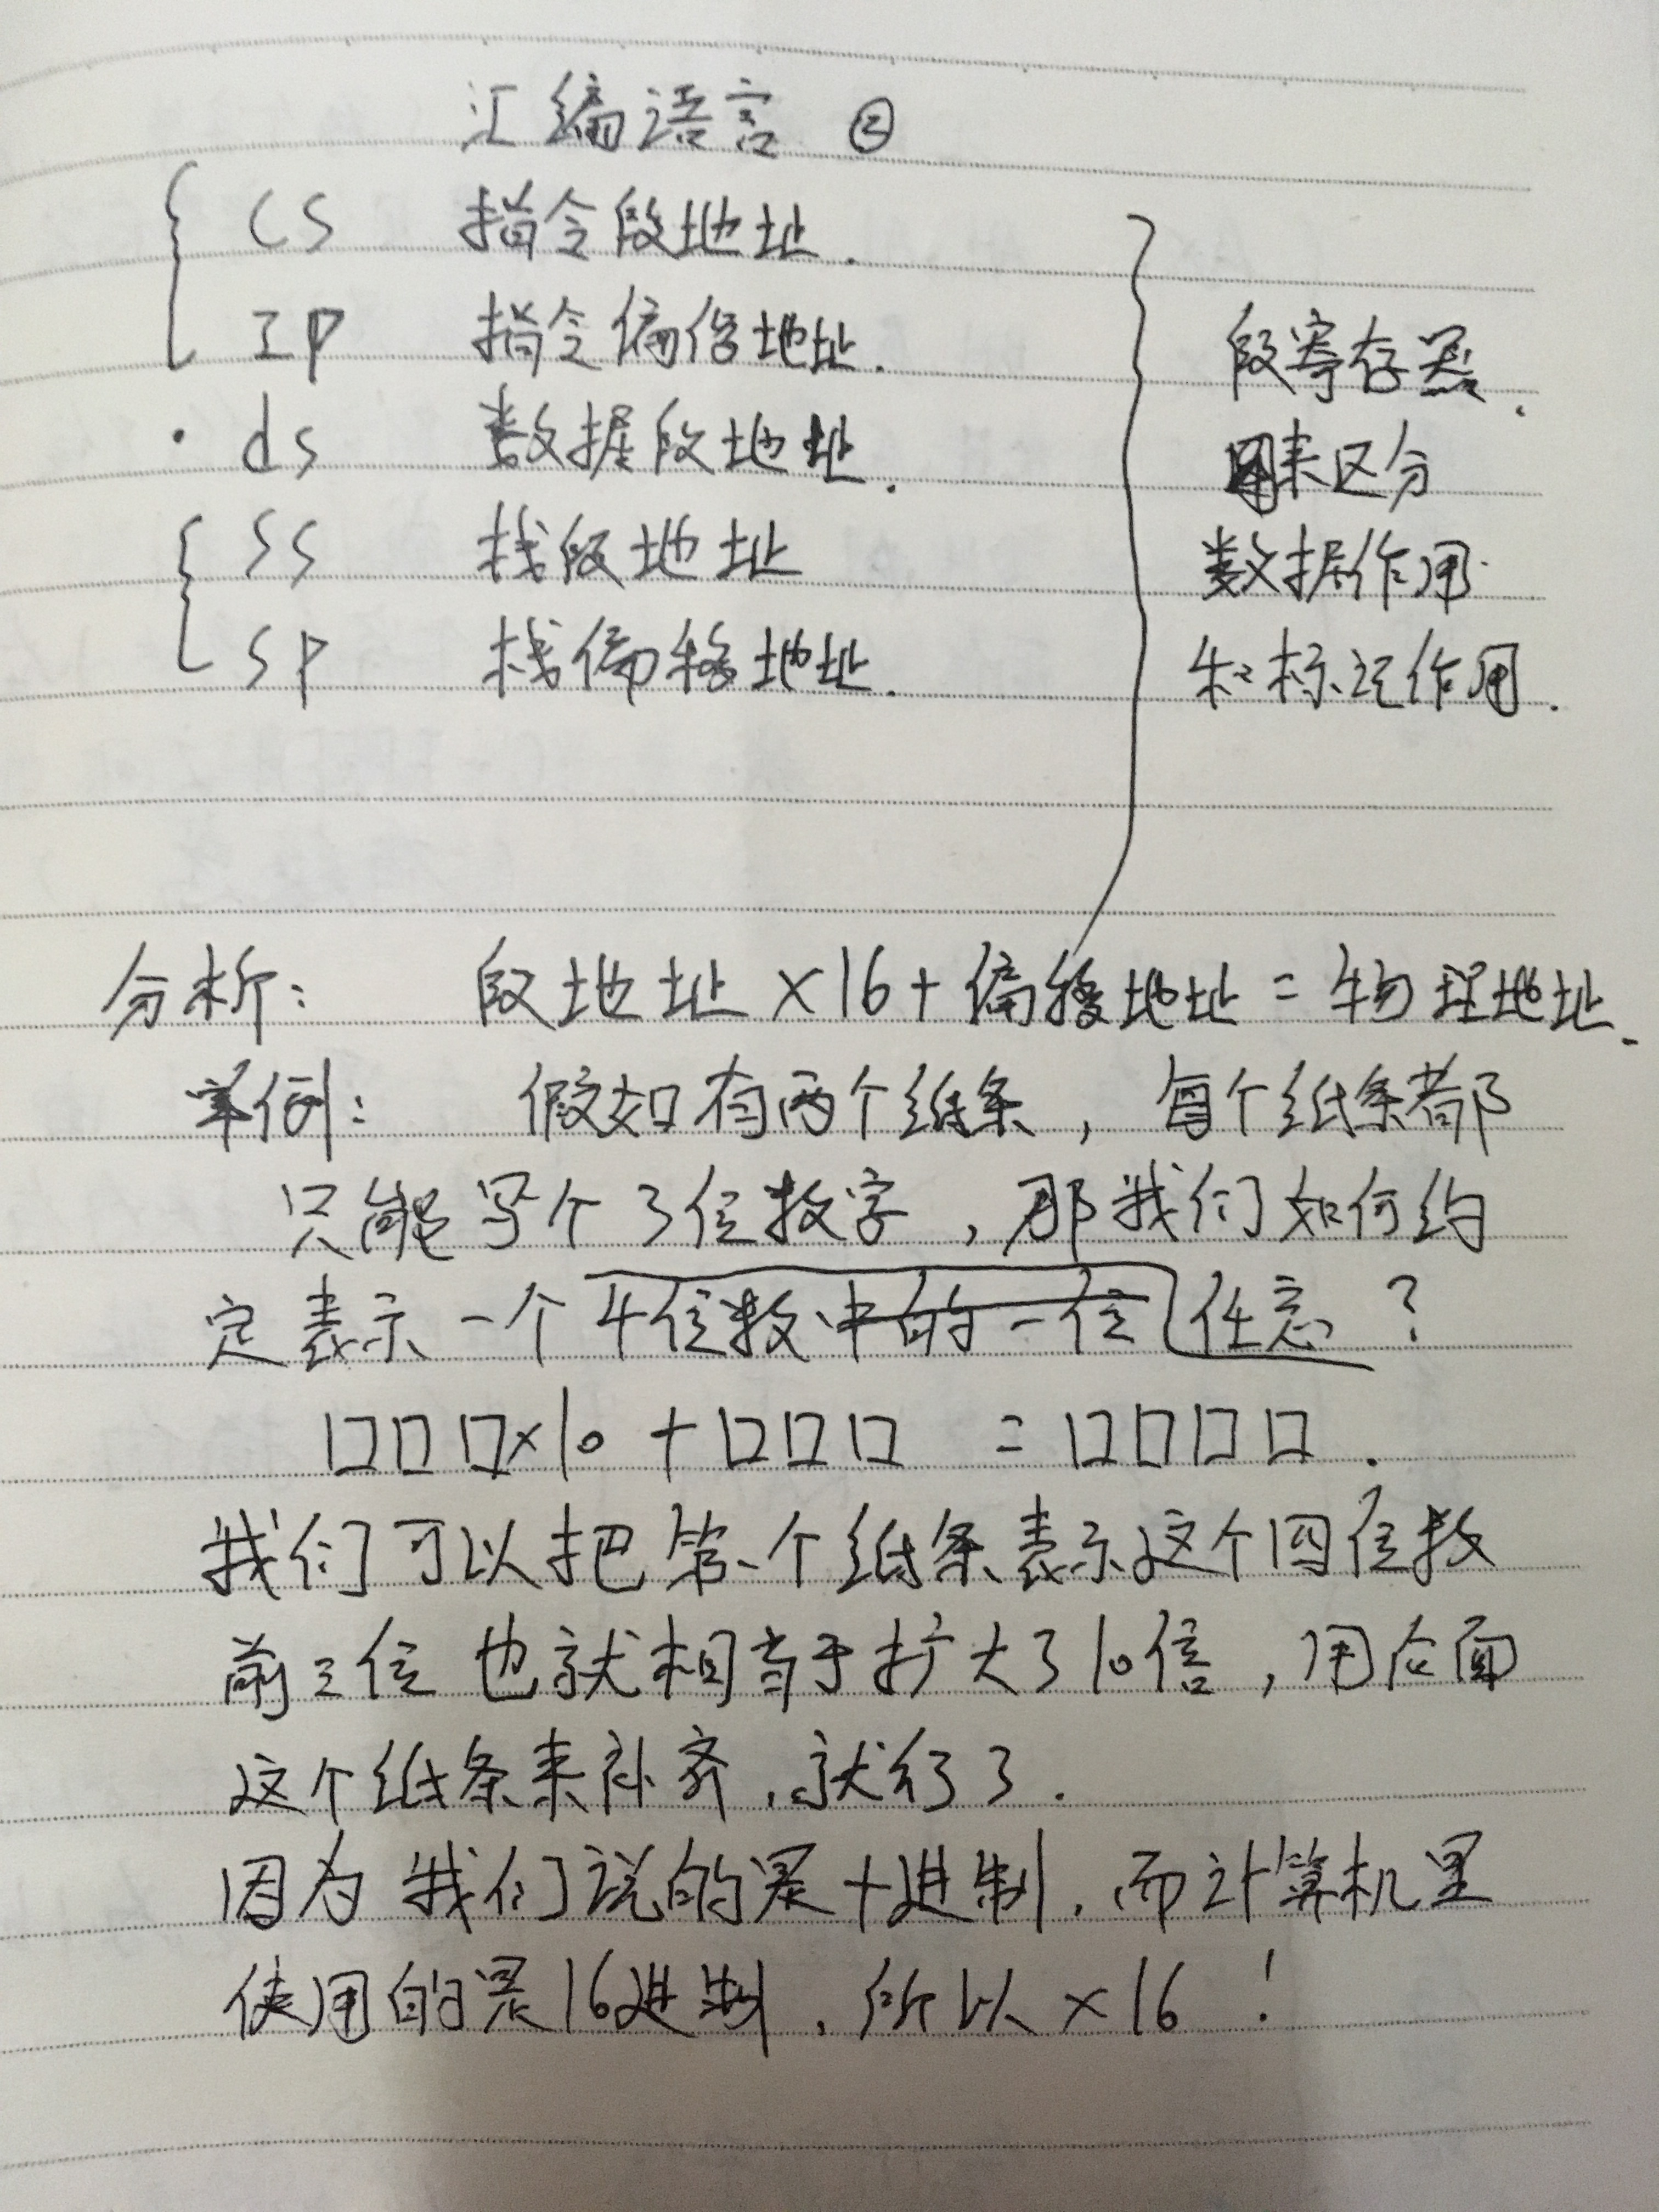 汇编语言 ②
CS 指令段地址.
IP 指令偏移地址.
段寄存器.
· ds 数据段地址.
用来区分
SS 栈段地址
数据作用
SP 栈偏移地址.
和标记作用.
分析: 段地址×16+偏移地址=物理地址.
举例: 假如有两个纸条, 每个纸条都
只能写个3位数字, 那我们如何约
定表示一个4位数中的一位任意?
口口口×10+口口口 =口口口口.
我们可以把第一个纸条表示这个四位数
前三位 也就相当于扩大了10倍, 用后面
这个纸条来补齐, 就行了.
因为我们说的是十进制, 而计算机里
使用的是16进制, 所以×16 !